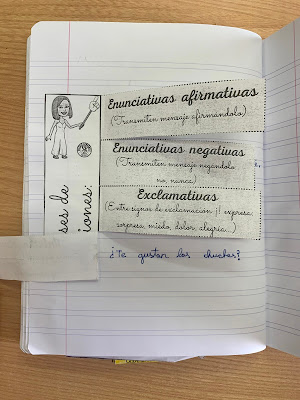 Enunciativas afirmativas
(Transmiten mensaje afirmándolo)
Enunciativas negativas
(Transmiten mensaje negándolo
no, nunca)
Exclamativas
(Entre signos de exclamación ¡! expresa:
sorpresa, miedo, dolor, alegría...)
ses de
iones:
¿Te gustan las chuches?